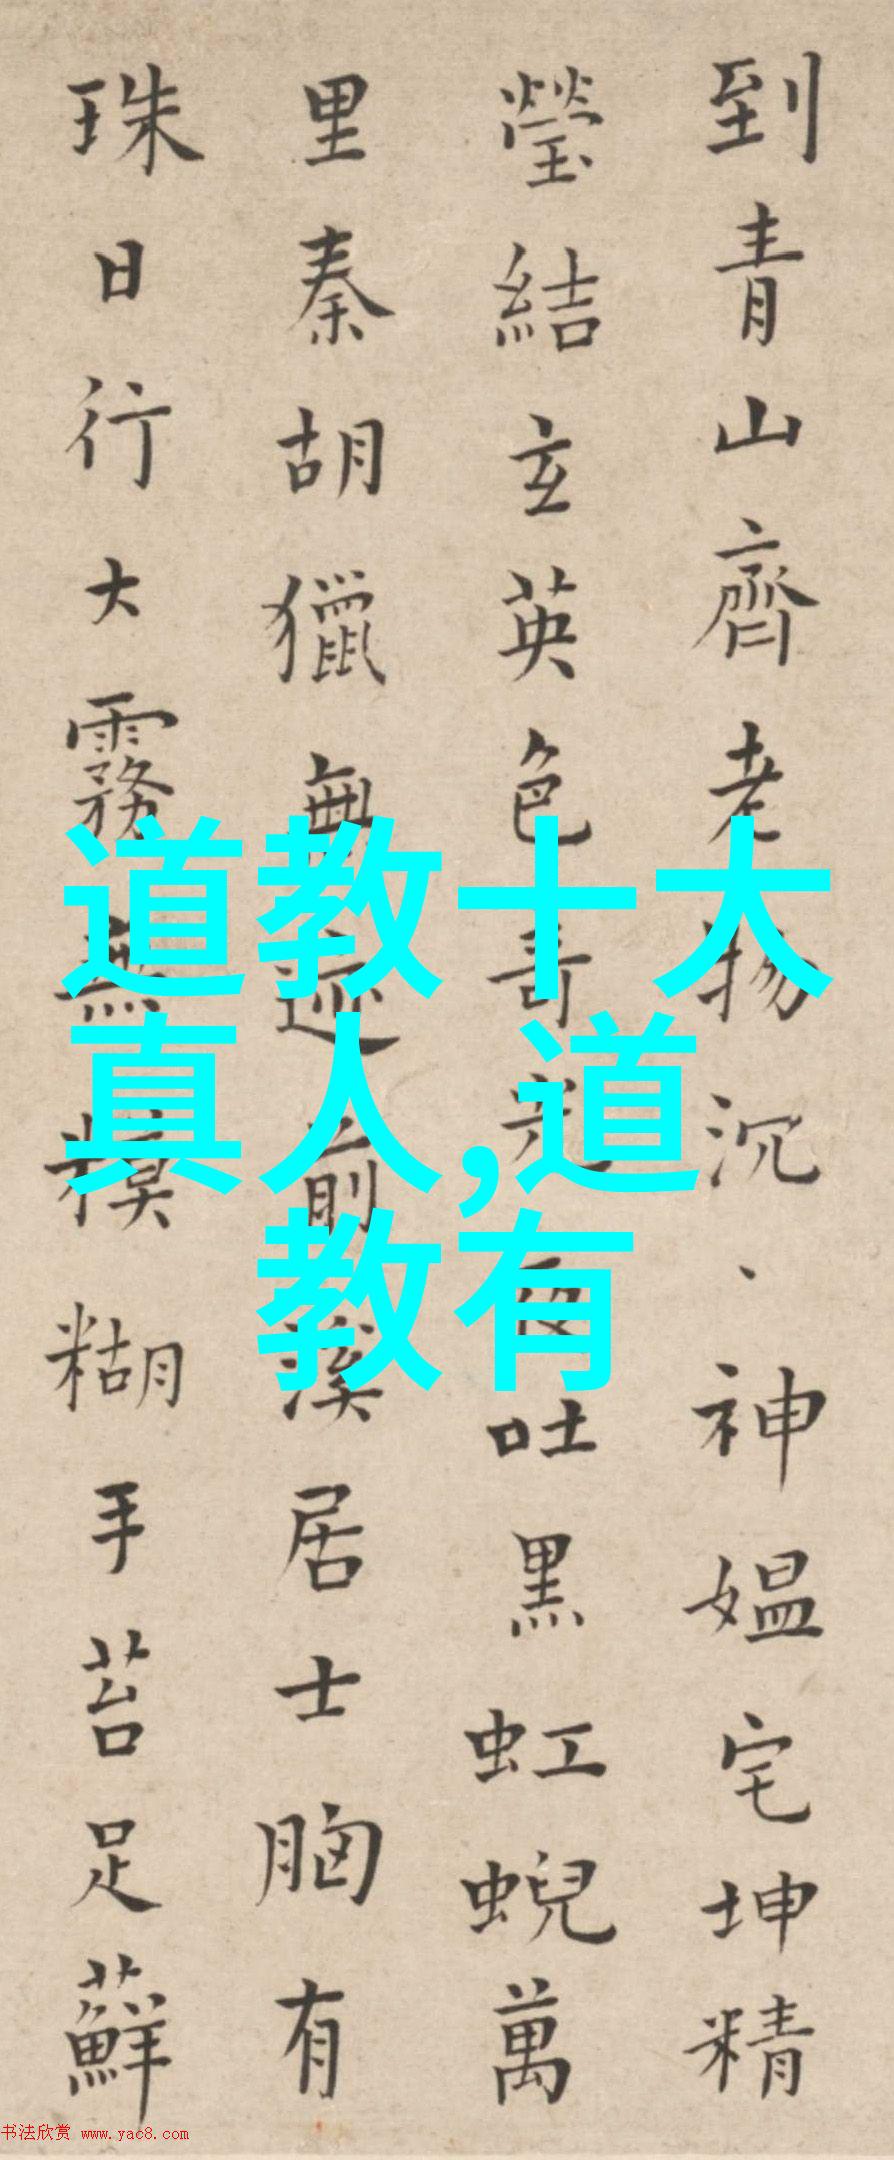 到青山齊老物沉、神媼宅坤精
瑩結玄英色奇光夜吐黑虹蜺萬
里秦胡獵無迹前溪居士胸有
珠日行大霧無模糊手苔足蘚
道教十大
真人,道
教有
书法欣赏 www.yac8.com